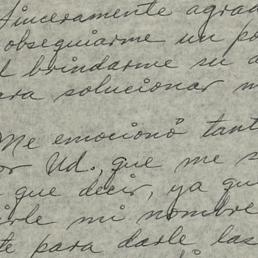 Sinceramente agrad
obsequiarme un po
l brindarme su a
ara solucionar m
Me emocionó tant
or Ud., que me s
que decir, ya qu
irle mi nombre
te para darle las